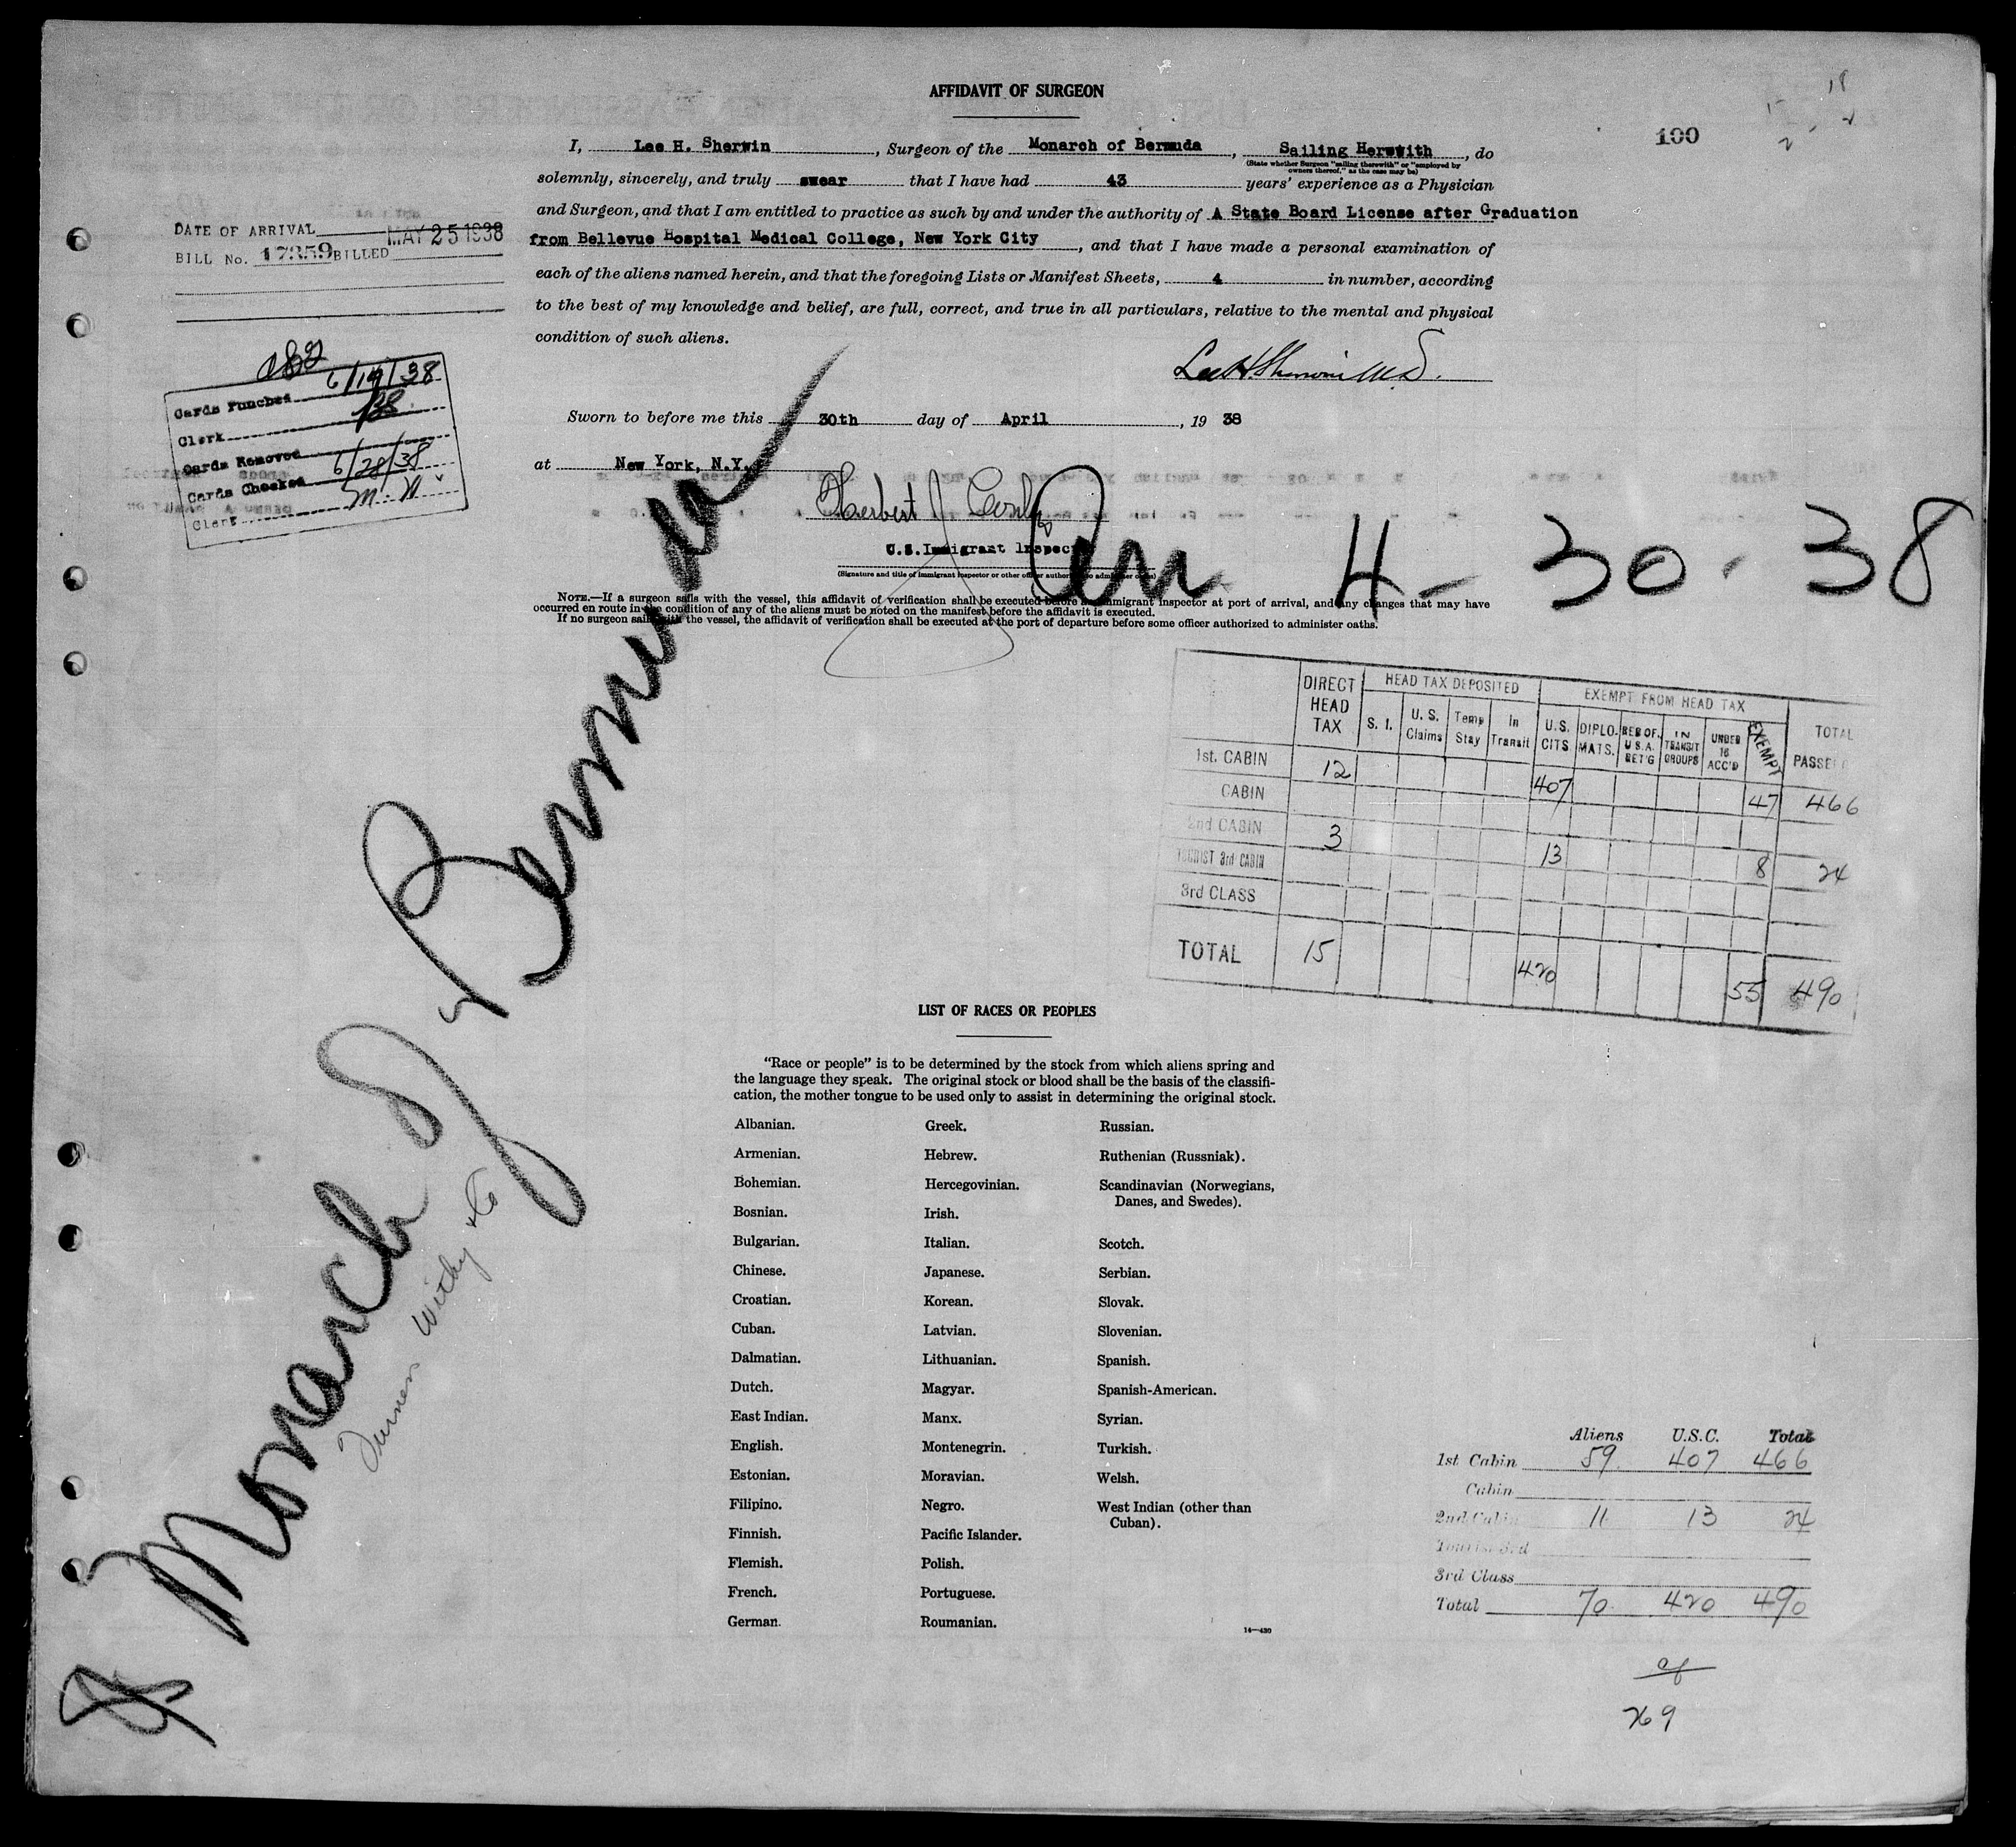 AFFIDAVIT OF SURGEON
100
I, Lee H. Sherwin, Surgeon of the Monarch of Bermuda, Sailing Herewith, do
(State whether Surgeon "sailing therewith" or "employed by
owners thereof," as the case may be)
solemnly, sincerely, and truly swear that I have had 43 years' experience as a Physician
and Surgeon, and that I am entitled to practice as such by and under the authority of A State Board License after Graduation
from Bellevue Hospital Medical College, New York City, and that I have made a personal examination of
each of the aliens named herein, and that the foregoing Lists or Manifest Sheets, 4 in number, according
to the best of my knowledge and belief, are full, correct, and true in all particulars, relative to the mental and physical
condition of such aliens.
Lee H. Sherwin M.D.
DATE OF ARRIVAL
BILL No. 17359 BILLED MAY 25 1938
Cards Punched 6/14/38
Clerk
Cards Removed
Cards Checked 6/28/38
Clerk M. W.
Sworn to before me this 30th day of April, 19 38
at New York, N.Y.
Herbert J.
U.S. Immigrant Inspector
(Signature and title of immigrant inspector or other officer authorized to administer oaths)
Arr 4-30-38
NOTE.—If a surgeon sails with the vessel, this affidavit of verification shall be executed before an immigrant inspector at port of arrival, and any changes that may have
occurred en route in the condition of any of the aliens must be noted on the manifest before the affidavit is executed.
If no surgeon sails with the vessel, the affidavit of verification shall be executed at the port of departure before some officer authorized to administer oaths.
Monarch of Bermuda
Furness Withy & Co
DIRECT HEAD TAX HEAD TAX DEPOSITED EXEMPT FROM HEAD TAX TOTAL PASSEN
S. I. U. S. Claims Temp Stay In Transit U.S. CITS DIPLOMATS. RES OF. U.S.A. RET'G IN TRANSIT GROUPS UNDER 16 ACC'D EXEMPT
1st. CABIN 12 407 47 466
CABIN
2nd CABIN 3 13 8 24
TOURIST 3rd CABIN
3rd CLASS
TOTAL 15 420 55 490
LIST OF RACES OR PEOPLES
"Race or people" is to be determined by the stock from which aliens spring and
the language they speak. The original stock or blood shall be the basis of the classifi-
cation, the mother tongue to be used only to assist in determining the original stock.
Albanian.
Armenian.
Bohemian.
Bosnian.
Bulgarian.
Chinese.
Croatian.
Cuban.
Dalmatian.
Dutch.
East Indian.
English.
Estonian.
Filipino.
Finnish.
Flemish.
French.
German.
Greek.
Hebrew.
Hercegovinian.
Irish.
Italian.
Japanese.
Korean.
Latvian.
Lithuanian.
Magyar.
Manx.
Montenegrin.
Moravian.
Negro.
Pacific Islander.
Polish.
Portuguese.
Roumanian.
Russian.
Ruthenian (Russniak).
Scandinavian (Norwegians,
Danes, and Swedes).
Scotch.
Serbian.
Slovak.
Slovenian.
Spanish.
Spanish-American.
Syrian.
Turkish.
Welsh.
West Indian (other than
Cuban).
14—430
Aliens U.S.C. Total
1st Cabin 59 407 466
Cabin
2nd Cabin 11 13 24
Tourist 3rd
3rd Class
Total 70 420 490